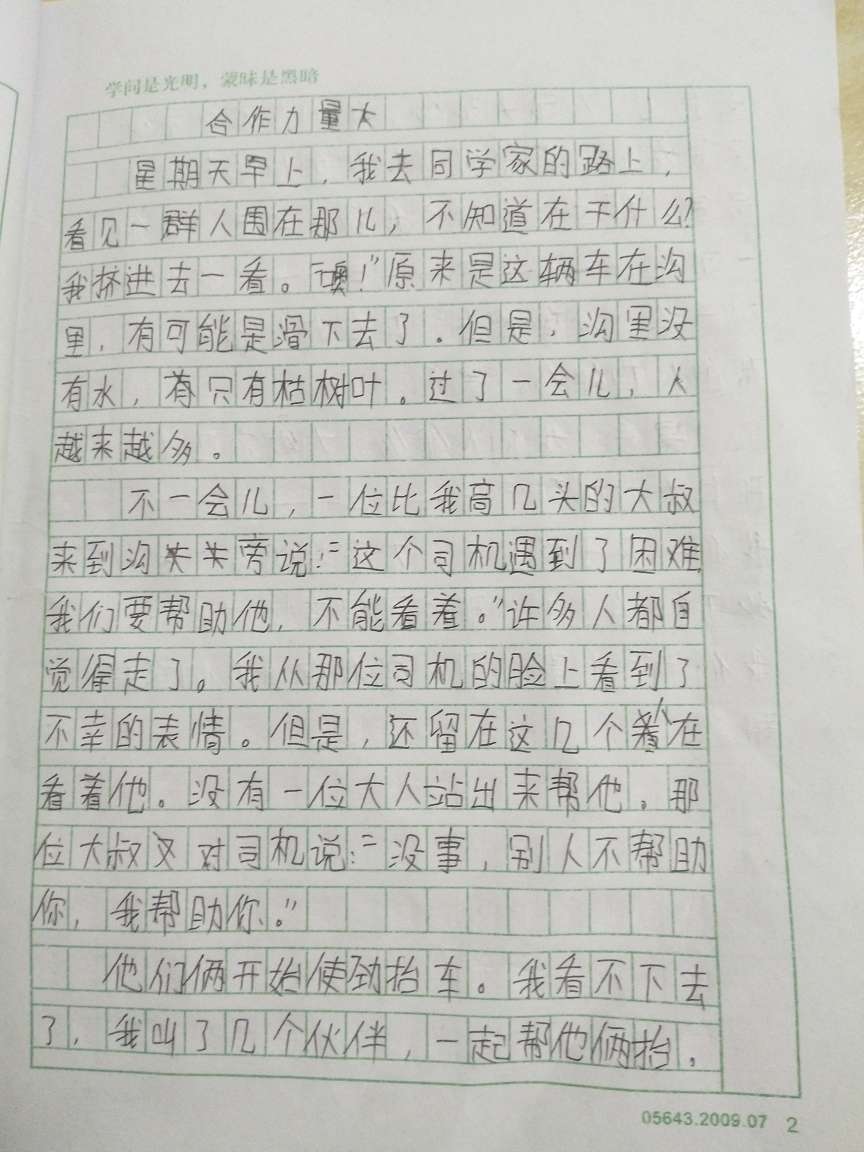 学问是光明，蒙昧是黑暗
合作力量大
星期天早上，我去同学家的路上，
看见一群人围在那儿，不知道在干什么？
我挤进去一看。“噢！”原来是这辆车在沟
里，有可能是滑下去了。但是，沟里没
有水，有只有枯树叶。过了一会儿，人
越来越多。
不一会儿，一位比我高几头的大叔
来到沟旁说：“这个司机遇到了困难
我们要帮助他，不能看着。”许多人都自
觉得走了。我从那位司机的脸上看到了
不幸的表情。但是，还留在这几个人在
看着他。没有一位大人站出来帮他。那
位大叔又对司机说：“没事，别人不帮助
你，我帮助你。”
他们俩开始使劲抬车。我看不下去
了，我叫了几个伙伴，一起帮他俩抬。
05643.2009.07 2